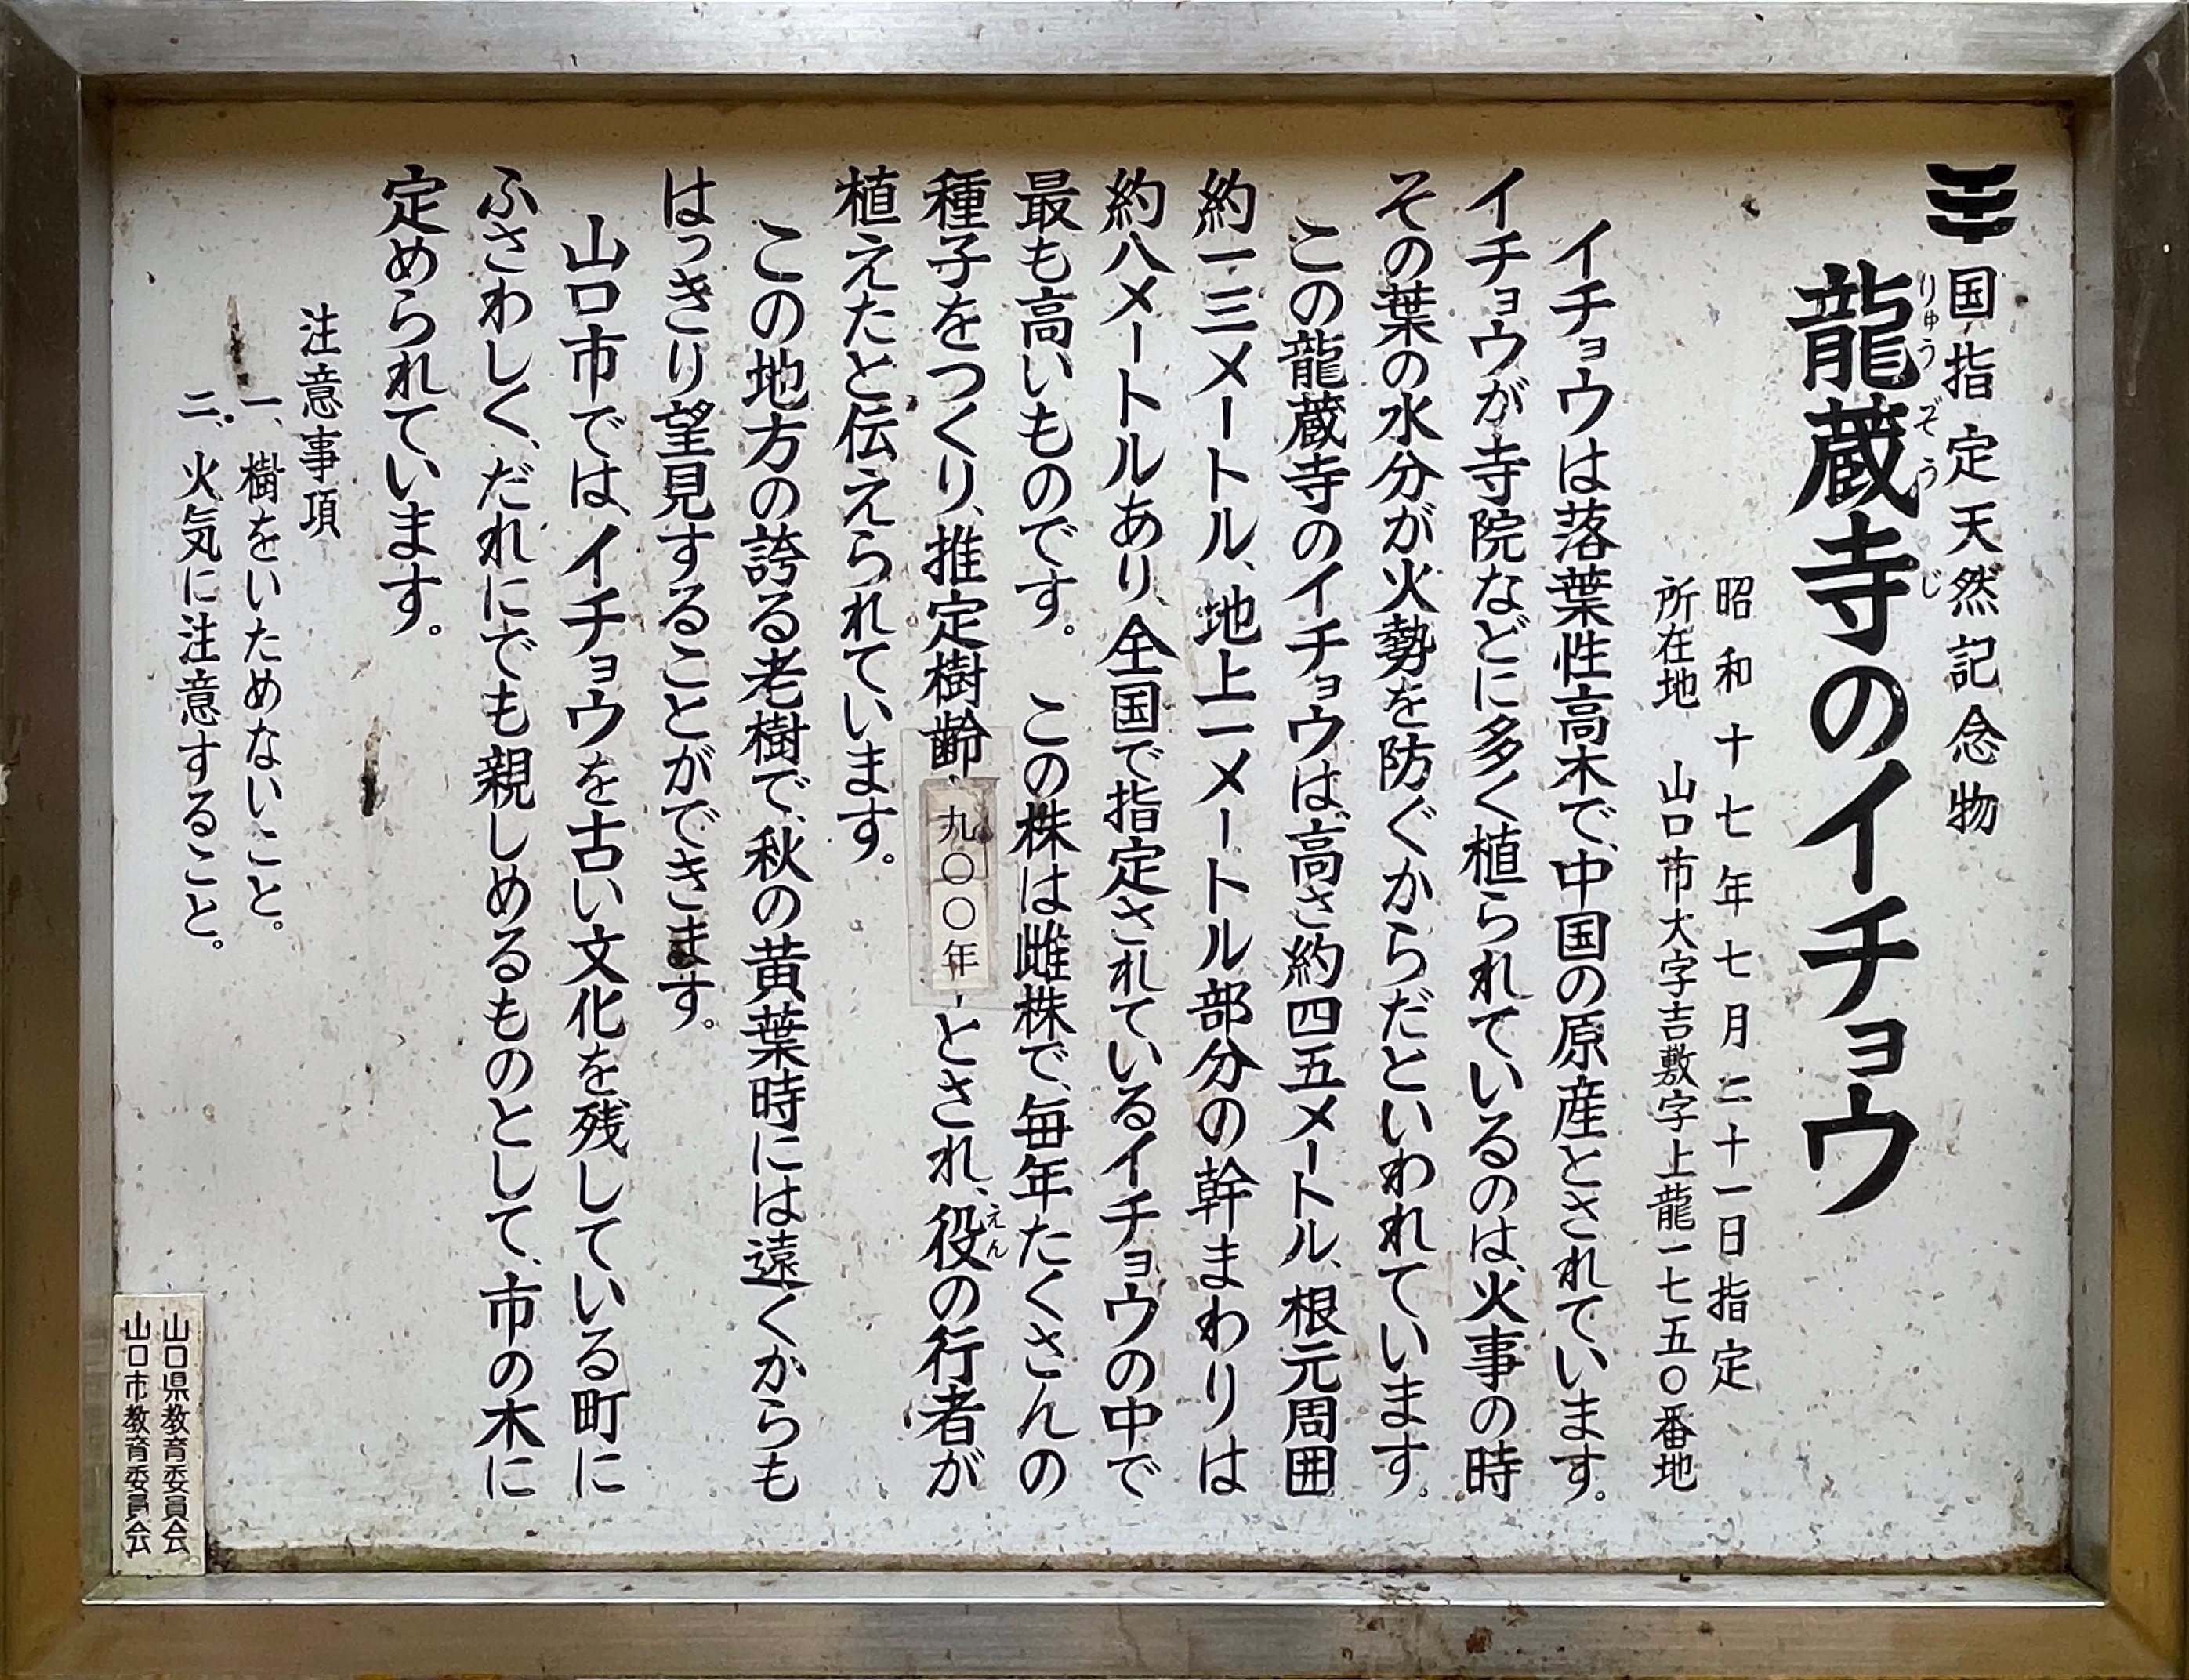 国指定天然記念物
龍蔵寺のイチョウ
りゅうぞうじ
昭和十七年七月二十一日指定
所在地　山口市大字吉敷字上龍一七五〇番地
　イチョウは落葉性高木で、中国の原産とされています。
イチョウが寺院などに多く植られているのは、火事の時
その葉の水分が火勢を防ぐからだといわれています。
　この龍蔵寺のイチョウは、高さ約四五メートル、根元周囲
約一三メートル、地上一メートル部分の幹まわりは
約八メートルあり、全国で指定されているイチョウの中で
最も高いものです。　この株は雌株で、毎年たくさんの
種子をつくり、推定樹齢九〇〇年とされ、役の行者が
えん
植えたと伝えられています。
　この地方の誇る老樹で、秋の黄葉時には遠くからも
はっきり望見することができます。
　山口市では、イチョウを古い文化を残している町に
ふさわしく、だれにでも親しめるものとして、市の木に
定められています。
注意事項
一、樹をいためないこと。
二、火気に注意すること。
山口県教育委員会
山口市教育委員会